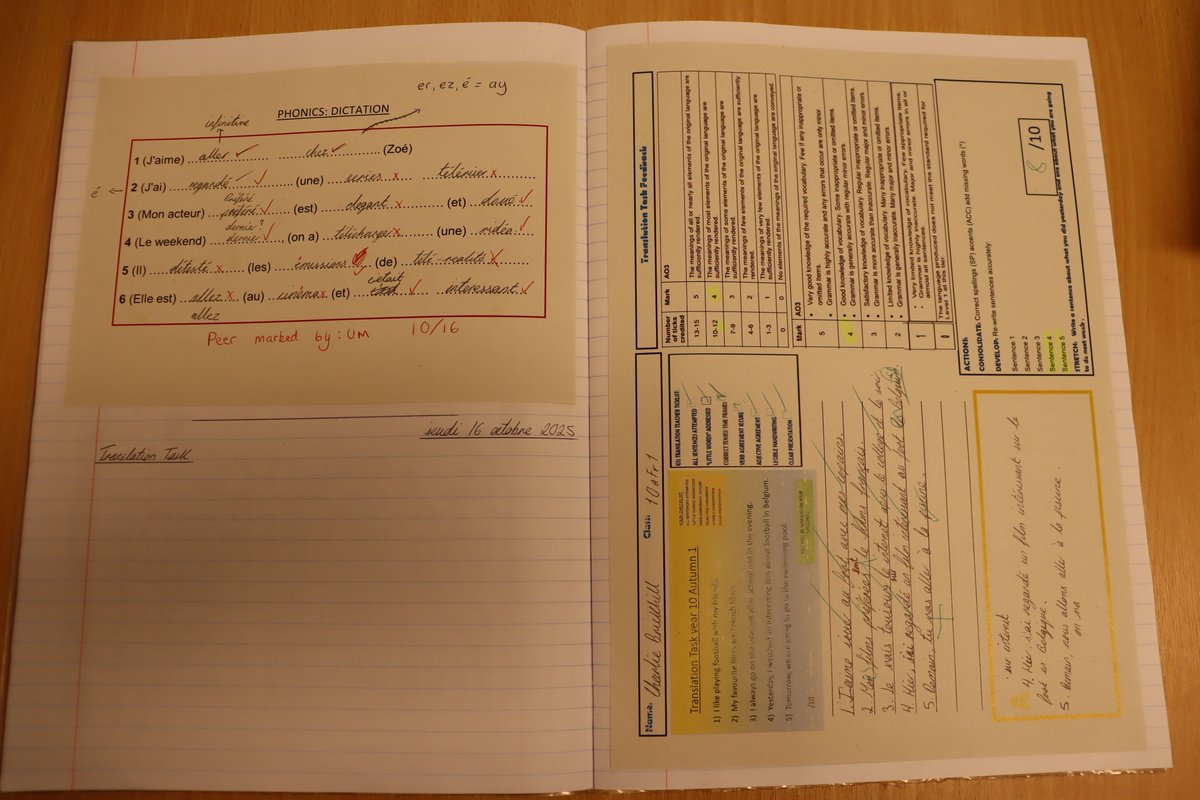 er, ez, é = ay
PHONICS: DICTATION
infinitive
1 (J'aime) aller chez (Zoé)
é ← 2 (J'ai) regardé (une) series x télévision x
3 (Mon acteur) préféré préféré (est) elegant x (et) doué
dernier?
4 (Le weekend) dernier (on a) télécharger x (une) vidéo
5 (Il) détesté x (les) émissions (de) télé-realité x
6 (Elle est) allez x (au) cinéma x (et) était interessant
allez
Peer marked by: UM 10/16
jeudi 16 octobre 2025
Translation Task
Name: Charlie Class: 10
Translation Task year 10 Autumn 1
YOUR CHECKLIST
1) I like playing football with my friends.
2) My favourite films are French films.
3) I always go on the internet after school and in the evening.
4) Yesterday, I watched an interesting film about football in Belgium.
5) Tomorrow, we are going to go to the swimming pool.
/10
KS TRANSLATION TEACHER TICKLIST:
ALL SENTENCES ATTEMPTED
'LITTLE WORDS' ADDRESSED
CORRECT TENSES/ TIME FRAMES
VERB AGREEMENT SECURE
ADJECTIVE AGREEMENT
LEGIBLE HANDWRITING
CLEAR PRESENTATION
1. J'aime jouer au foot avec mes copains.
2. Mes films préférés sont le films français.
3. Je vais toujours le internet après le collège et le soir.
4. Hier j'ai regardé un film intéressant sur foot Belgique.
5. Demain, tu vas aller à la piscine.
sur internet
4. Hier, j'ai regardé un film intéressant sur le
foot en Belgique.
5. Demain nous allons aller à la piscine.
on va
Translation Task Feedback
Number of ticks credited Mark AO3
13-15 5 The meanings of all or nearly all elements of the original language are sufficiently rendered.
10-12 4 The meanings of most elements of the original language are sufficiently rendered.
7-9 3 The meanings of some elements of the original language are sufficiently rendered.
4-6 2 The meanings of few elements of the original language are sufficiently rendered.
1-3 1 The meanings of very few elements of the original language are sufficiently rendered.
0 0 No elements of the meaning of the original language are conveyed.
Mark AO3
5 • Very good knowledge of the required vocabulary. Few if any inappropriate or omitted items.
• Grammar is highly accurate and any errors that occur are only minor.
4 • Good knowledge of vocabulary. Some inappropriate or omitted items.
• Grammar is generally accurate with regular minor errors.
3 • Satisfactory knowledge of vocabulary. Regular inappropriate or omitted items.
• Grammar is more accurate than inaccurate. Regular major and minor errors.
2 • Limited knowledge of vocabulary. Many inappropriate or omitted items.
• Grammar is generally inaccurate. Many major and minor errors.
1 • Very limited knowledge of vocabulary. Few appropriate items.
• Grammar is highly inaccurate. Major and minor errors in all or almost all sentences.
0 The language produced does not meet the standard required for Level 1 at this tier.
ACTIONS:
CONSOLIDATE: Correct spellings (SP) accents (ACC) add missing words (^)
DEVELOP: Re-write sentences accurately:
Sentence 1
Sentence 2
Sentence 3
Sentence 4
Sentence 5
STRETCH: Write a sentence about what you did yesterday and about what you are going to do next week.
8 /10